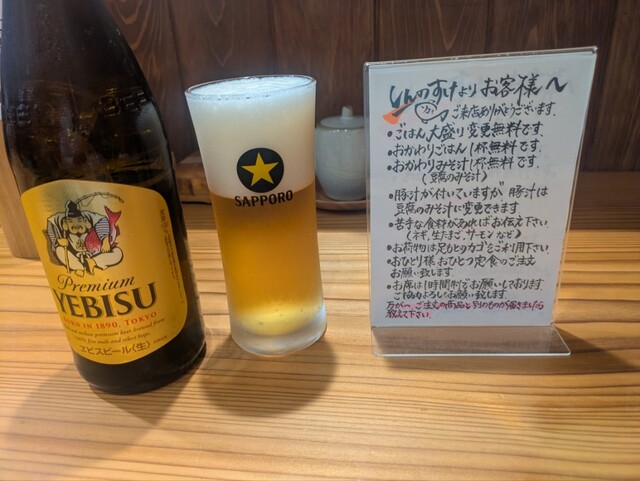 Premium
YEBISU
IN 1890, TOKYO
ヱビスビール〈生〉
SAPPORO
しんのすけより お客様へ
ご来店ありがとうございます。
•ごはん大盛り変更無料です。
•おかわりごはん1杯無料です。
•おかわりみそ汁1杯無料です。
(豆腐のみそ汁)
•豚汁が付いていますが 豚汁は
豆腐のみそ汁に変更できます。
•苦手な食料があればお伝え下さい。
(ネギ、生たまご、サーモンなど)
•お荷物は足もとのカゴをご利用下さい。
•おひとり様 おひとつ定食のご注文
お願い致します。
•お席は1時間制でお願いしております。
ご協力よろしくお願い致します。
万が一、ご注文の商品と別のものが届きましたら
教えて下さい。